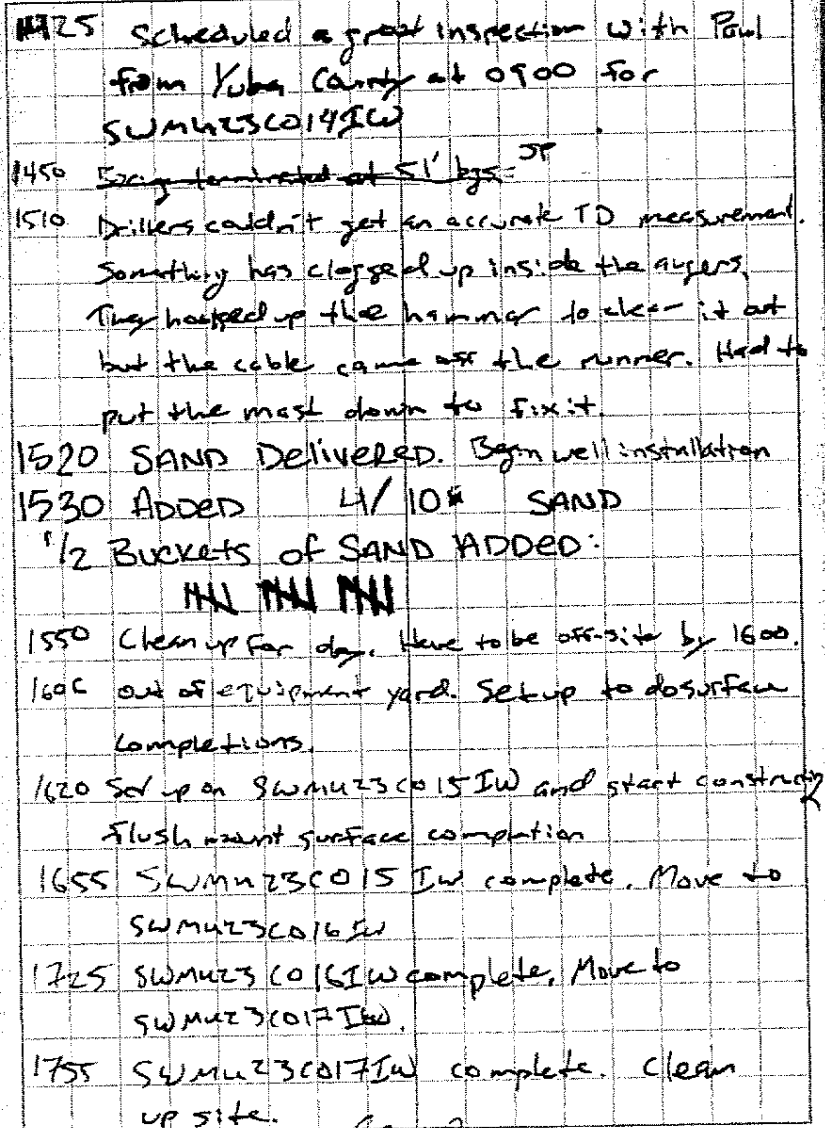 1425 Scheduled a grout inspection with Paul
from Yuba County at 0900 for
SWMU23C014IW
1450 Boring terminated at 51' bgs. JP
1510 Drillers couldn't get an accurate TD measurement.
Something has clogged up inside the augers.
They hooked up the hammer to clear it out
but the cable came off the runner. Had to
put the mast down to fix it.
1520 SAND DeliveReD. Begin well installation
1530 ADDeD 4/10 SAND
1/2 Buckets of SAND ADDeD:
1550 Clean up for day. Have to be off-site by 1600.
1606 out of equipment yard. Set up to do surface
completions.
1620 Set up on SWMU23C015IW and start constructing
flush mount surface completion
1655 SWMU23C015IW complete. Move to
SWMU23C016IW
1725 SWMU23C016IW complete. Move to
SWMU23C017IW.
1755 SWMU23C017IW complete. Clean
up site.